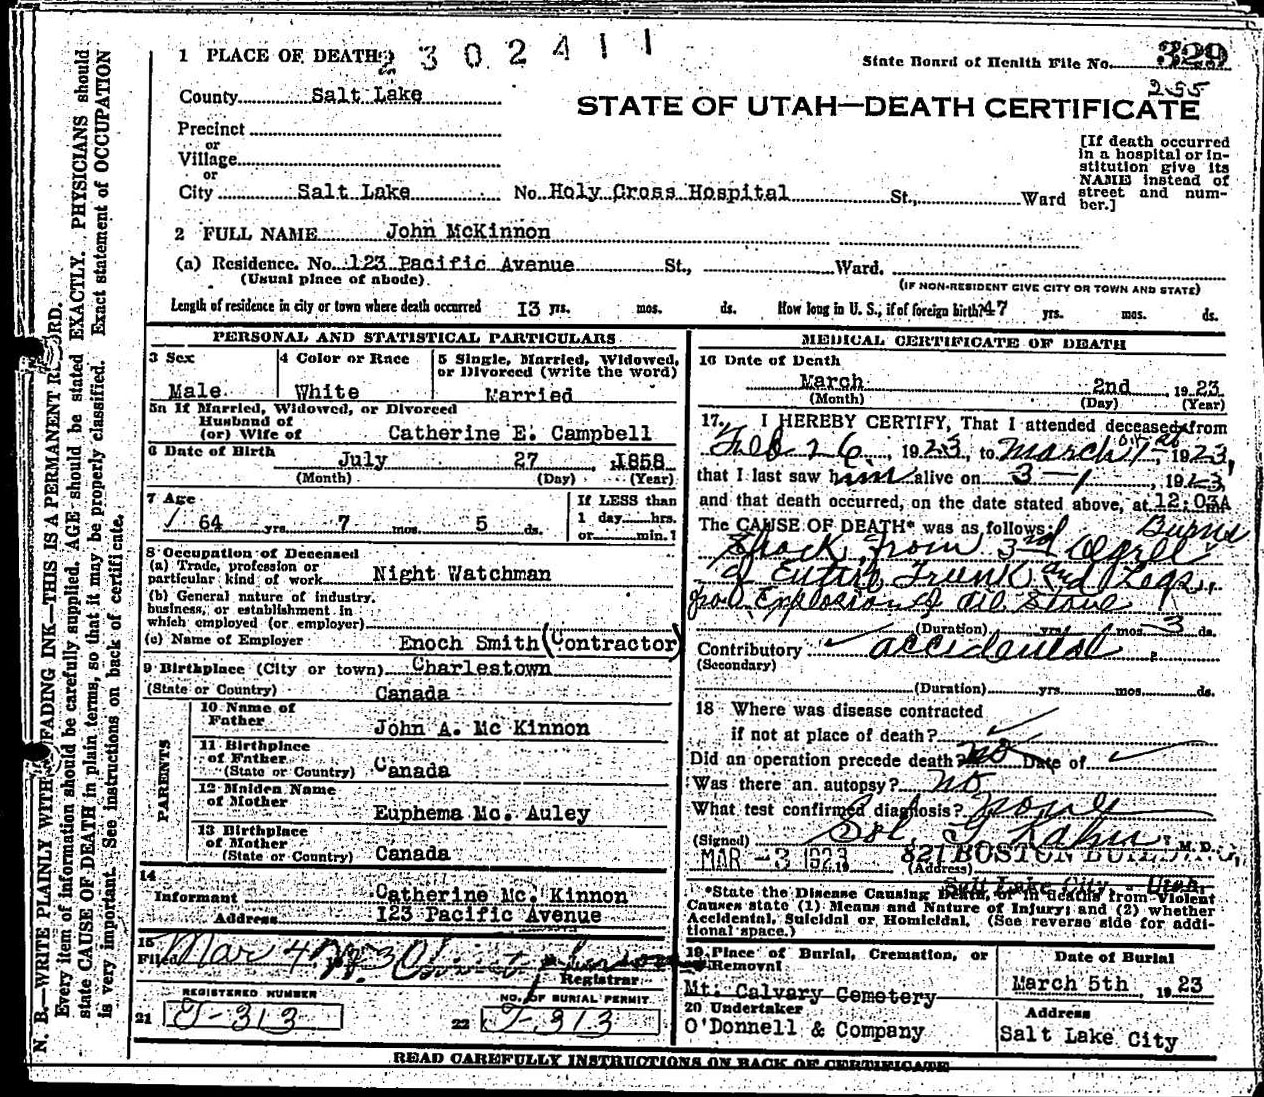 1 PLACE OF DEATH
2 3 0 2 4 1 1
State Board of Health File No. 329
255
County Salt Lake
STATE OF UTAH—DEATH CERTIFICATE
Precinct
or
Village
or
City Salt Lake No. Holy Cross Hospital St., Ward
[If death occurred
in a hospital or in-
stitution give its
NAME instead of
street and num-
ber.]
2 FULL NAME John McKinnon
(a) Residence. No. 123 Pacific Avenue St., Ward.
(Usual place of abode) (IF NON-RESIDENT GIVE CITY OR TOWN AND STATE)
Length of residence in city or town where death occurred 13 yrs. mos. ds. How long in U. S., if of foreign birth? 47 yrs. mos. ds.
PERSONAL AND STATISTICAL PARTICULARS
3 Sex
Male
4 Color or Race
White
5 Single, Married, Widowed,
or Divorced (write the word)
Married
5a If Married, Widowed, or Divorced
Husband of
(or) Wife of Catherine E. Campbell
6 Date of Birth July 27, 1858
(Month) (Day) (Year)
7 Age
64 yrs. 7 mos. 5 ds.
If LESS than
1 day hrs.
or min.?
8 Occupation of Deceased
(a) Trade, profession or
particular kind of work Night Watchman
(b) General nature of industry,
business, or establishment in
which employed (or employer)
(c) Name of Employer Enoch Smith (Contractor)
9 Birthplace (City or town) Charlestown
(State or Country) Canada
PARENTS
10 Name of
Father John A. Mc Kinnon
11 Birthplace
of Father
(State or Country) Canada
12 Maiden Name
of Mother Euphema Mc. Auley
13 Birthplace
of Mother
(State or Country) Canada
14
Informant Catherine Mc. Kinnon
Address 123 Pacific Avenue
15
Filed Mar 4
Registrar
REGISTERED NUMBER
21 T-313
NO. OF BURIAL PERMIT
22 T-313
MEDICAL CERTIFICATE OF DEATH
16 Date of Death
March 2nd, 1923
(Month) (Day) (Year)
17. I HEREBY CERTIFY, That I attended deceased from
Feb 26, 1923, to March 1st, 1923,
that I last saw him alive on 3-1, 1923,
and that death occurred, on the date stated above, at 12:03 A m.
The CAUSE OF DEATH* was as follows:
Shock from 3rd degree Burns
of Entire Trunk and Legs,
from Explosion of Oil Stove
(Duration) yrs. mos. 3 ds.
Contributory accidental
(Secondary)
(Duration) yrs. mos. ds.
18 Where was disease contracted
if not at place of death?
Did an operation precede death? no Date of
Was there an autopsy? no
What test confirmed diagnosis? none
(Signed) Sol G Kahn, M. D.
MAR -3 1923 19 (Address) 821 BOSTON BUILDING,
Salt Lake City, Utah.
*State the Disease Causing Death, or in deaths from Violent
Causes state (1) Means and Nature of Injury; and (2) whether
Accidental, Suicidal or Homicidal. (See reverse side for addi-
tional space.)
19 Place of Burial, Cremation, or
Removal
Mt. Calvary Cemetery
Date of Burial
March 5th, 1923
20 Undertaker
O'Donnell & Company
Address
Salt Lake City
READ CAREFULLY INSTRUCTIONS ON BACK OF CERTIFICATE
N. B.—WRITE PLAINLY WITH UNFADING INK—THIS IS A PERMANENT RECORD.
Every item of information should be carefully supplied. AGE should be stated EXACTLY. PHYSICIANS should
state CAUSE OF DEATH in plain terms, so that it may be properly classified. Exact statement of OCCUPATION
is very important. See instructions on back of certificate.